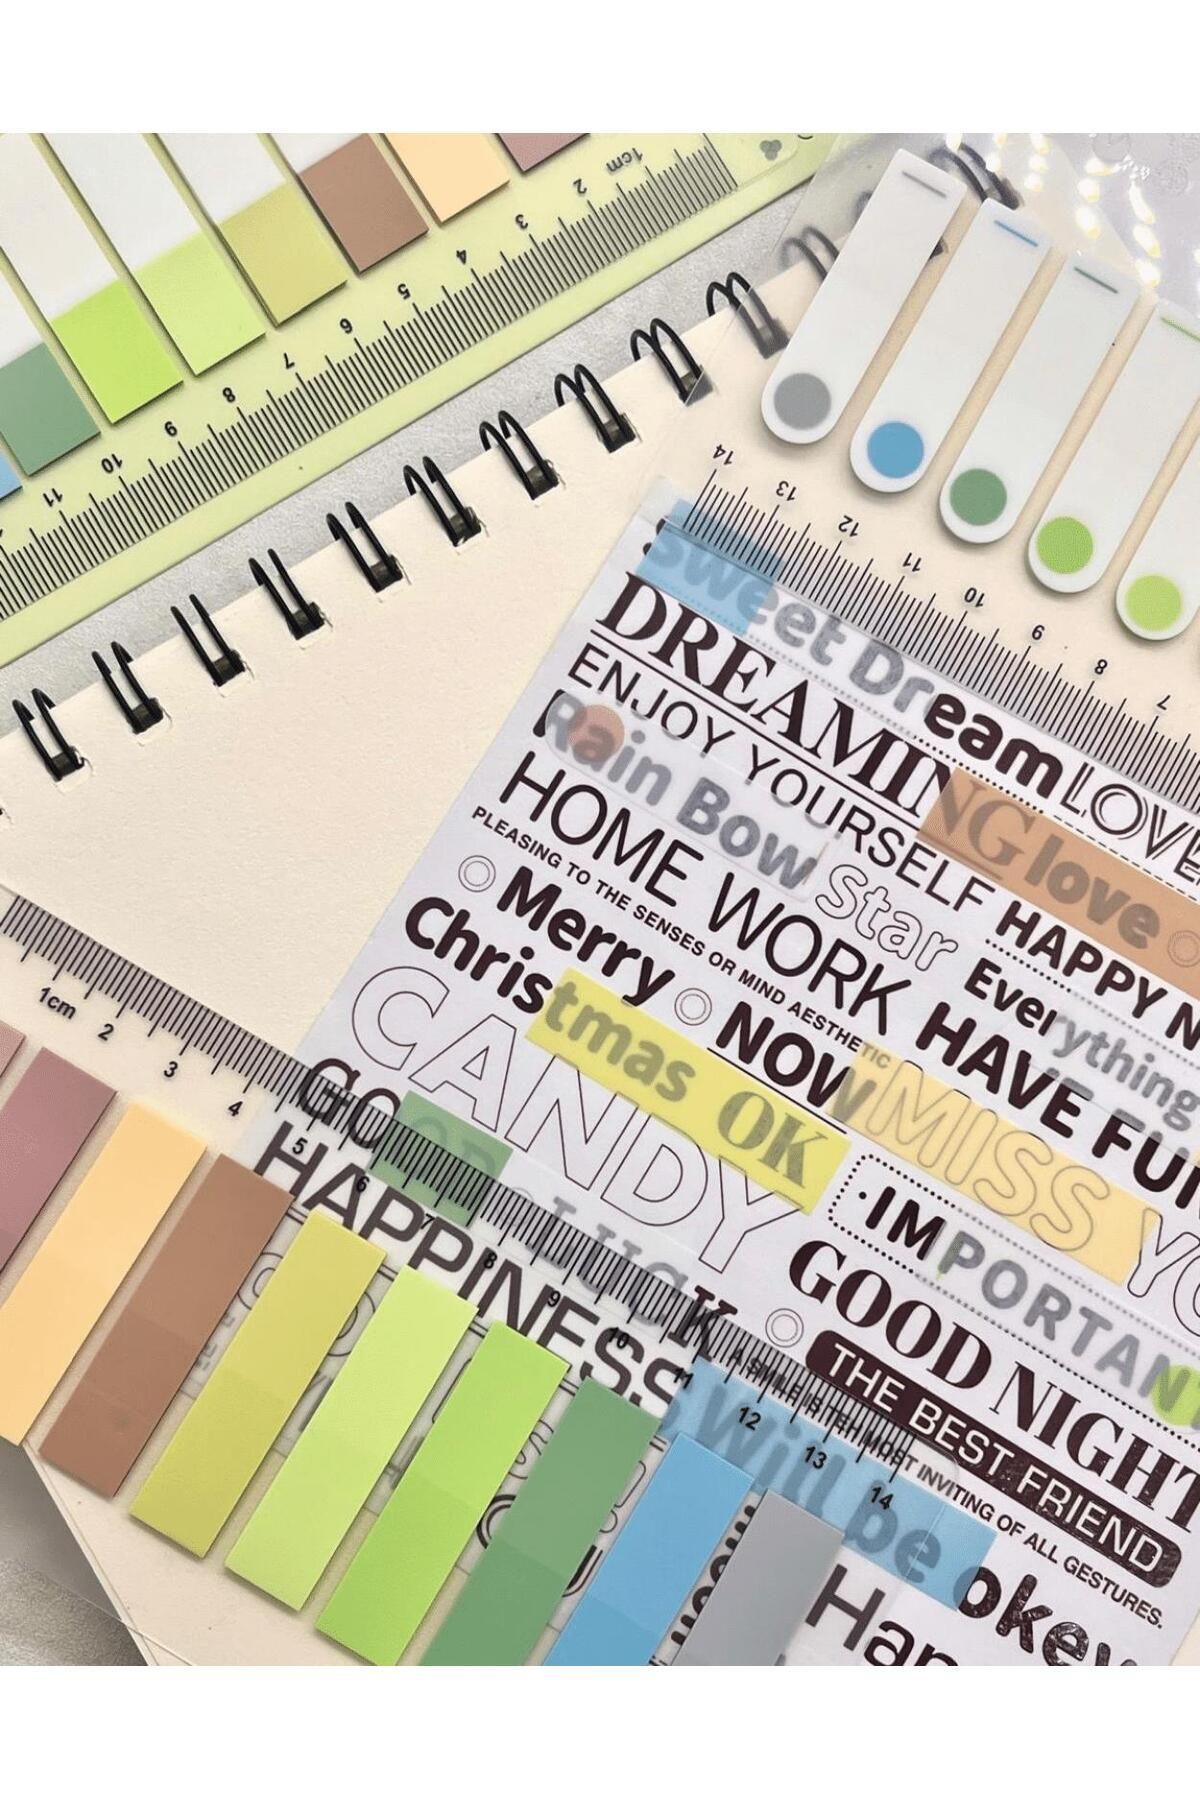 1cm 2 3 4 5 6 7 8 9 10 11
14 13 12 11 10 9 8 7
Sweet Dream LOVE
DREAMING love
ENJOY YOURSELF HAPPY
Rain Bow Star Everything
HOME WORK HAVE FUN
PLEASING TO THE SENSES OR MIND AESTHETIC
Merry NOW MISS
Christmas OK IMPORTANT
CANDY GOOD NIGHT
GOOD LUCK THE BEST FRIEND
HAPPINESS
A SMILE IS THE MOST INVITING OF ALL GESTURES.
Will be okey
1cm 2 3 4 5 6 7 8 9 10 11 12 13 14